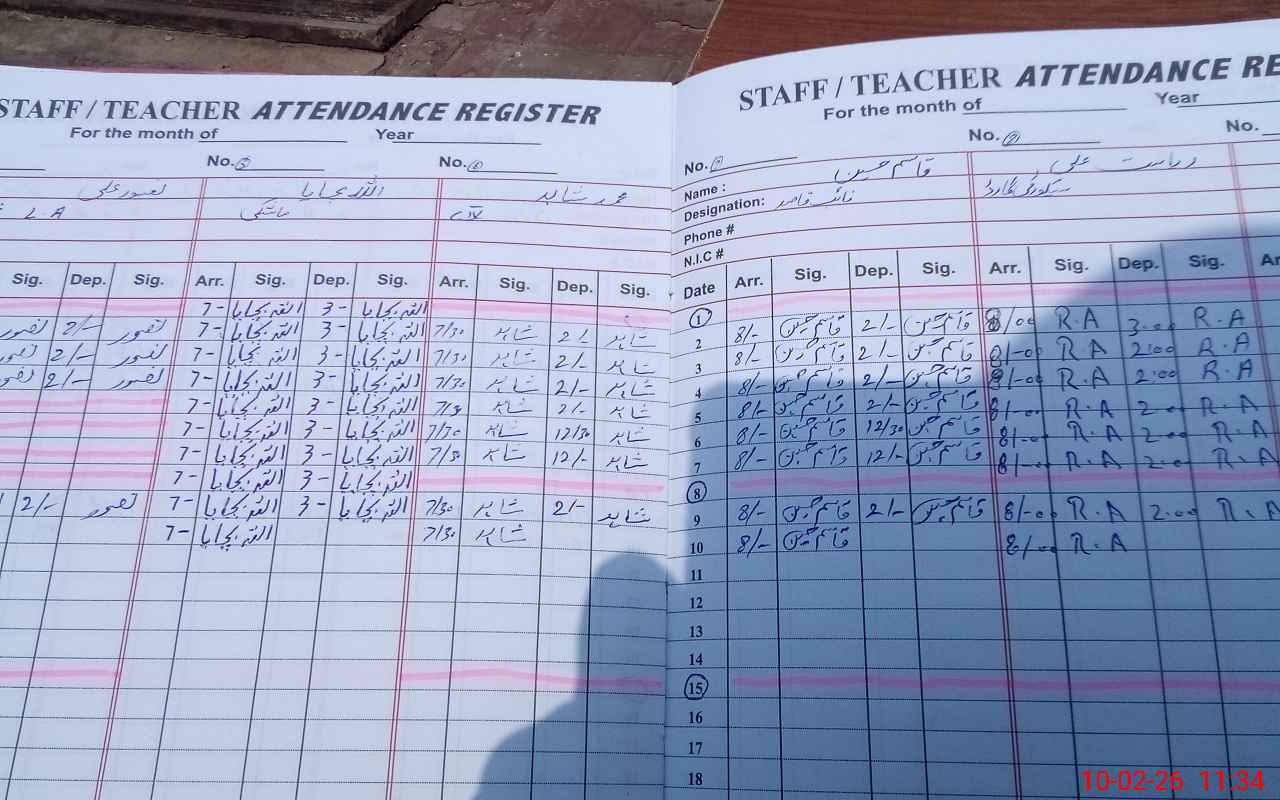 STAFF / TEACHER ATTENDANCE REGISTER
For the month of Year
No. 5 No. 6
تصور علی اللہ بچایا محمد شاہد
L.A ماشکی
Sig. Dep. Sig. Arr. Sig. Dep. Sig. Arr. Sig. Dep. Sig.
7- اللہ بچایا 3- اللہ بچایا
تصور 2/- تصور 7- اللہ بچایا 3- اللہ بچایا 7/30 شاہد 2/- شاہد
تصور 2/- تصور 7- اللہ بچایا 3- اللہ بچایا 7/30 شاہد 2/- شاہد
تصور 2/- تصور 7- اللہ بچایا 3- اللہ بچایا 7/30 شاہد 2/- شاہد
7- اللہ بچایا 3- اللہ بچایا 7/30 شاہد 2/- شاہد
7- اللہ بچایا 3- اللہ بچایا 7/30 شاہد 12/30 شاہد
7- اللہ بچایا 3- اللہ بچایا 7/30 شاہد 12/- شاہد
7- اللہ بچایا 3- اللہ بچایا
2/- تصور 7- اللہ بچایا 3- اللہ بچایا 7/30 شاہد 2/- شاہد
7- اللہ بچایا 7/30 شاہد
STAFF / TEACHER ATTENDANCE RE
For the month of Year
No. No. No.
Name : قاسم حسین ریاست علی
Designation: نائب قاصد سیکورٹی گارڈ
Phone #
N.I.C #
Date Arr. Sig. Dep. Sig. Arr. Sig. Dep. Sig. Ar
1
2 8/- قاسم حسین 2/- قاسم حسین 8/00 R.A 3:00 R.A
3 8/- قاسم حسین 2/- قاسم حسین 8/-00 R.A 2:00 R.A
4 8/- قاسم حسین 2/- قاسم حسین 8/-00 R.A 2:00 R.A
5 8/- قاسم حسین 2/- قاسم حسین 8/-00 R.A 2:00 R.A
6 8/- قاسم حسین 12/30 قاسم حسین 8/-00 R.A 2:00 R.A
7 8/- قاسم حسین 12/- قاسم حسین 8/-00 R.A 2:00 R.A
8
9 8/- قاسم حسین 2/- قاسم حسین 8/-00 R.A 2:00 R.A
10 8/- قاسم حسین 8/-00 R.A
11
12
13
14
15
16
17
18
10-02-26 11:34